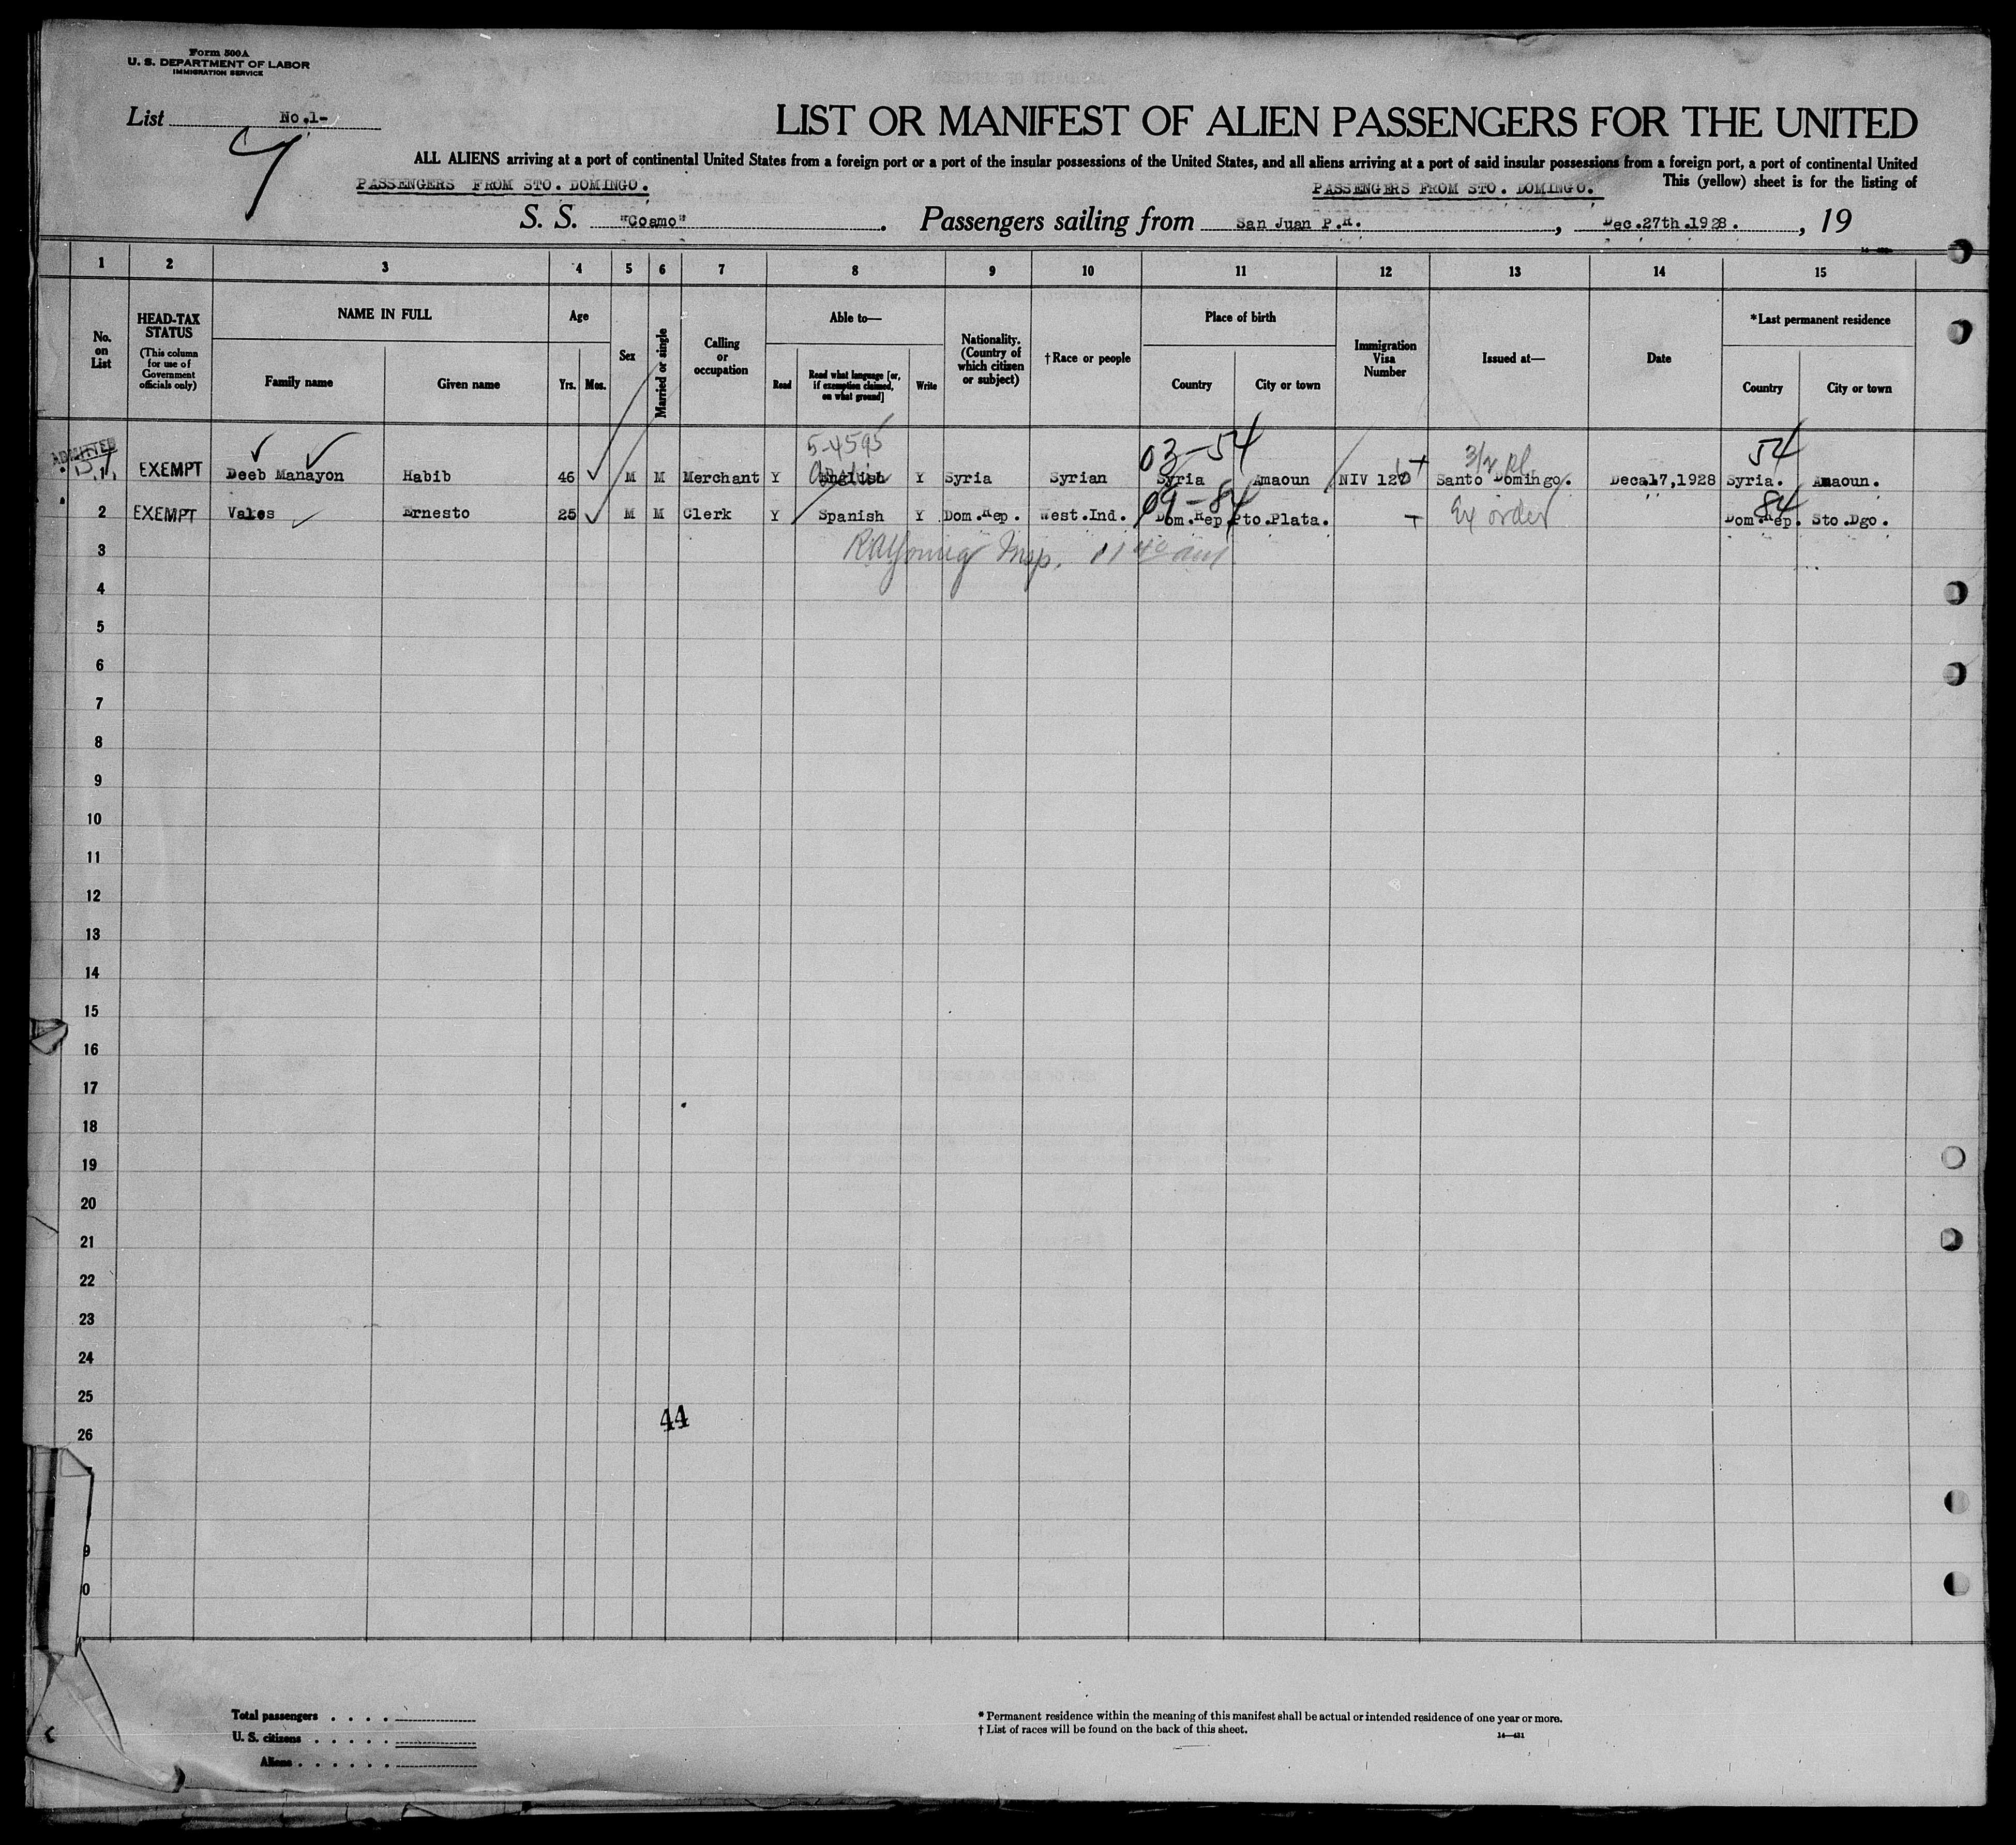 Form 500A
U. S. DEPARTMENT OF LABOR
IMMIGRATION SERVICE
List No.1-
LIST OR MANIFEST OF ALIEN PASSENGERS FOR THE UNITED
ALL ALIENS arriving at a port of continental United States from a foreign port or a port of the insular possessions of the United States, and all aliens arriving at a port of said insular possessions from a foreign port, a port of continental United
PASSENGERS FROM STO. DOMINGO. PASSENGERS FROM STO. DOMINGO. This (yellow) sheet is for the listing of
S. S. "Coamo". Passengers sailing from San Juan P.R., Dec.27th.1928., 19
1 2 3 4 5 6 7 8 9 10 11 12 13 14 15
No. on List
HEAD-TAX STATUS
(This column for use of Government officials only)
NAME IN FULL
Family name
Given name
Age
Yrs. Mos.
Sex
Married or single
Calling or occupation
Able to—
Read
Read what language [or, if exemption claimed, on what ground]
Write
Nationality. (Country of which citizen or subject)
†Race or people
Place of birth
Country
City or town
Immigration Visa Number
Issued at—
Date
*Last permanent residence
Country
City or town
5-4595
03-54
54
ADMITTED
1 EXEMPT Deeb Manayon Habib 46 M M Merchant Y English Y Syria Syrian Syria Amaoun NIV 126 Santo Domingo. Dec.17,1928 Syria. Amaoun.
09-84
84
2 EXEMPT Vakes Ernesto 25 M M Clerk Y Spanish Y Dom.Rep. West.Ind. Dom.Rep. Pto.Plata. Ex order Dom.Rep. Sto.Dgo.
3 RAYoung Insp. 11 40 am
4
5
6
7
8
9
10
11
12
13
14
15
16
17
18
19
20
21
22
23
24
25
44
26
9
0
Total passengers . . . .
U. S. citizens . . . . .
Aliens . . . . . .
* Permanent residence within the meaning of this manifest shall be actual or intended residence of one year or more.
† List of races will be found on the back of this sheet.
14—431